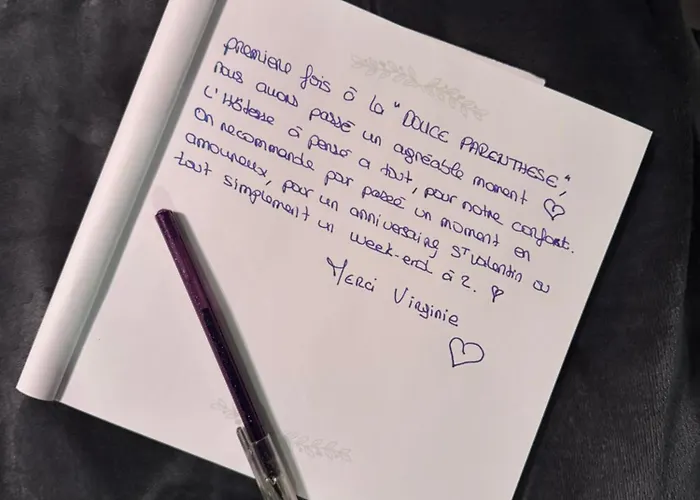 première fois à la "DOUCE PARENTHESE",
nous avons passé un agréable moment ♡
L'Hôtesse à pensé a tout, pour notre confort.
On recommande par passer un moment en
amoureux, pour un anniversaire, St Valentin ou
tout simplement un week-end à 2. ♡
Merci Virginie
♡